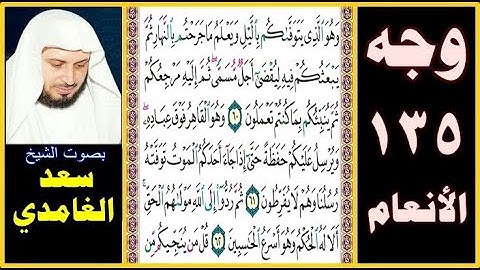 وجه
١٣٥
الأنعام
وَهُوَ ٱلَّذِى يَتَوَفَّىٰكُم بِٱلَّيْلِ وَيَعْلَمُ مَا جَرَحْتُم بِٱلنَّهَارِ ثُمَّ
يَبْعَثُكُمْ فِيهِ لِيُقْضَىٰٓ أَجَلٌ مُّسَمًّى ثُمَّ إِلَيْهِ مَرْجِعُكُمْ
ثُمَّ يُنَبِّئُكُم بِمَا كُنتُمْ تَعْمَلُونَ ٦٠ وَهُوَ ٱلْقَاهِرُ فَوْقَ عِبَادِهِۦ
وَيُرْسِلُ عَلَيْكُمْ حَفَظَةً حَتَّىٰٓ إِذَا جَآءَ أَحَدَكُمُ ٱلْمَوْتُ تَوَفَّتْهُ
رُسُلُنَا وَهُمْ لَا يُفَرِّطُونَ ٦١ ثُمَّ رُدُّوٓا۟ إِلَى ٱللَّهِ مَوْلَىٰهُمُ ٱلْحَقِّ
أَلَا لَهُ ٱلْحُكْمُ وَهُوَ أَسْرَعُ ٱلْحَٰسِبِينَ ٦٢ قُلْ مَن يُنَجِّيكُم مِّن
بصوت الشيخ
سعد
الغامدي